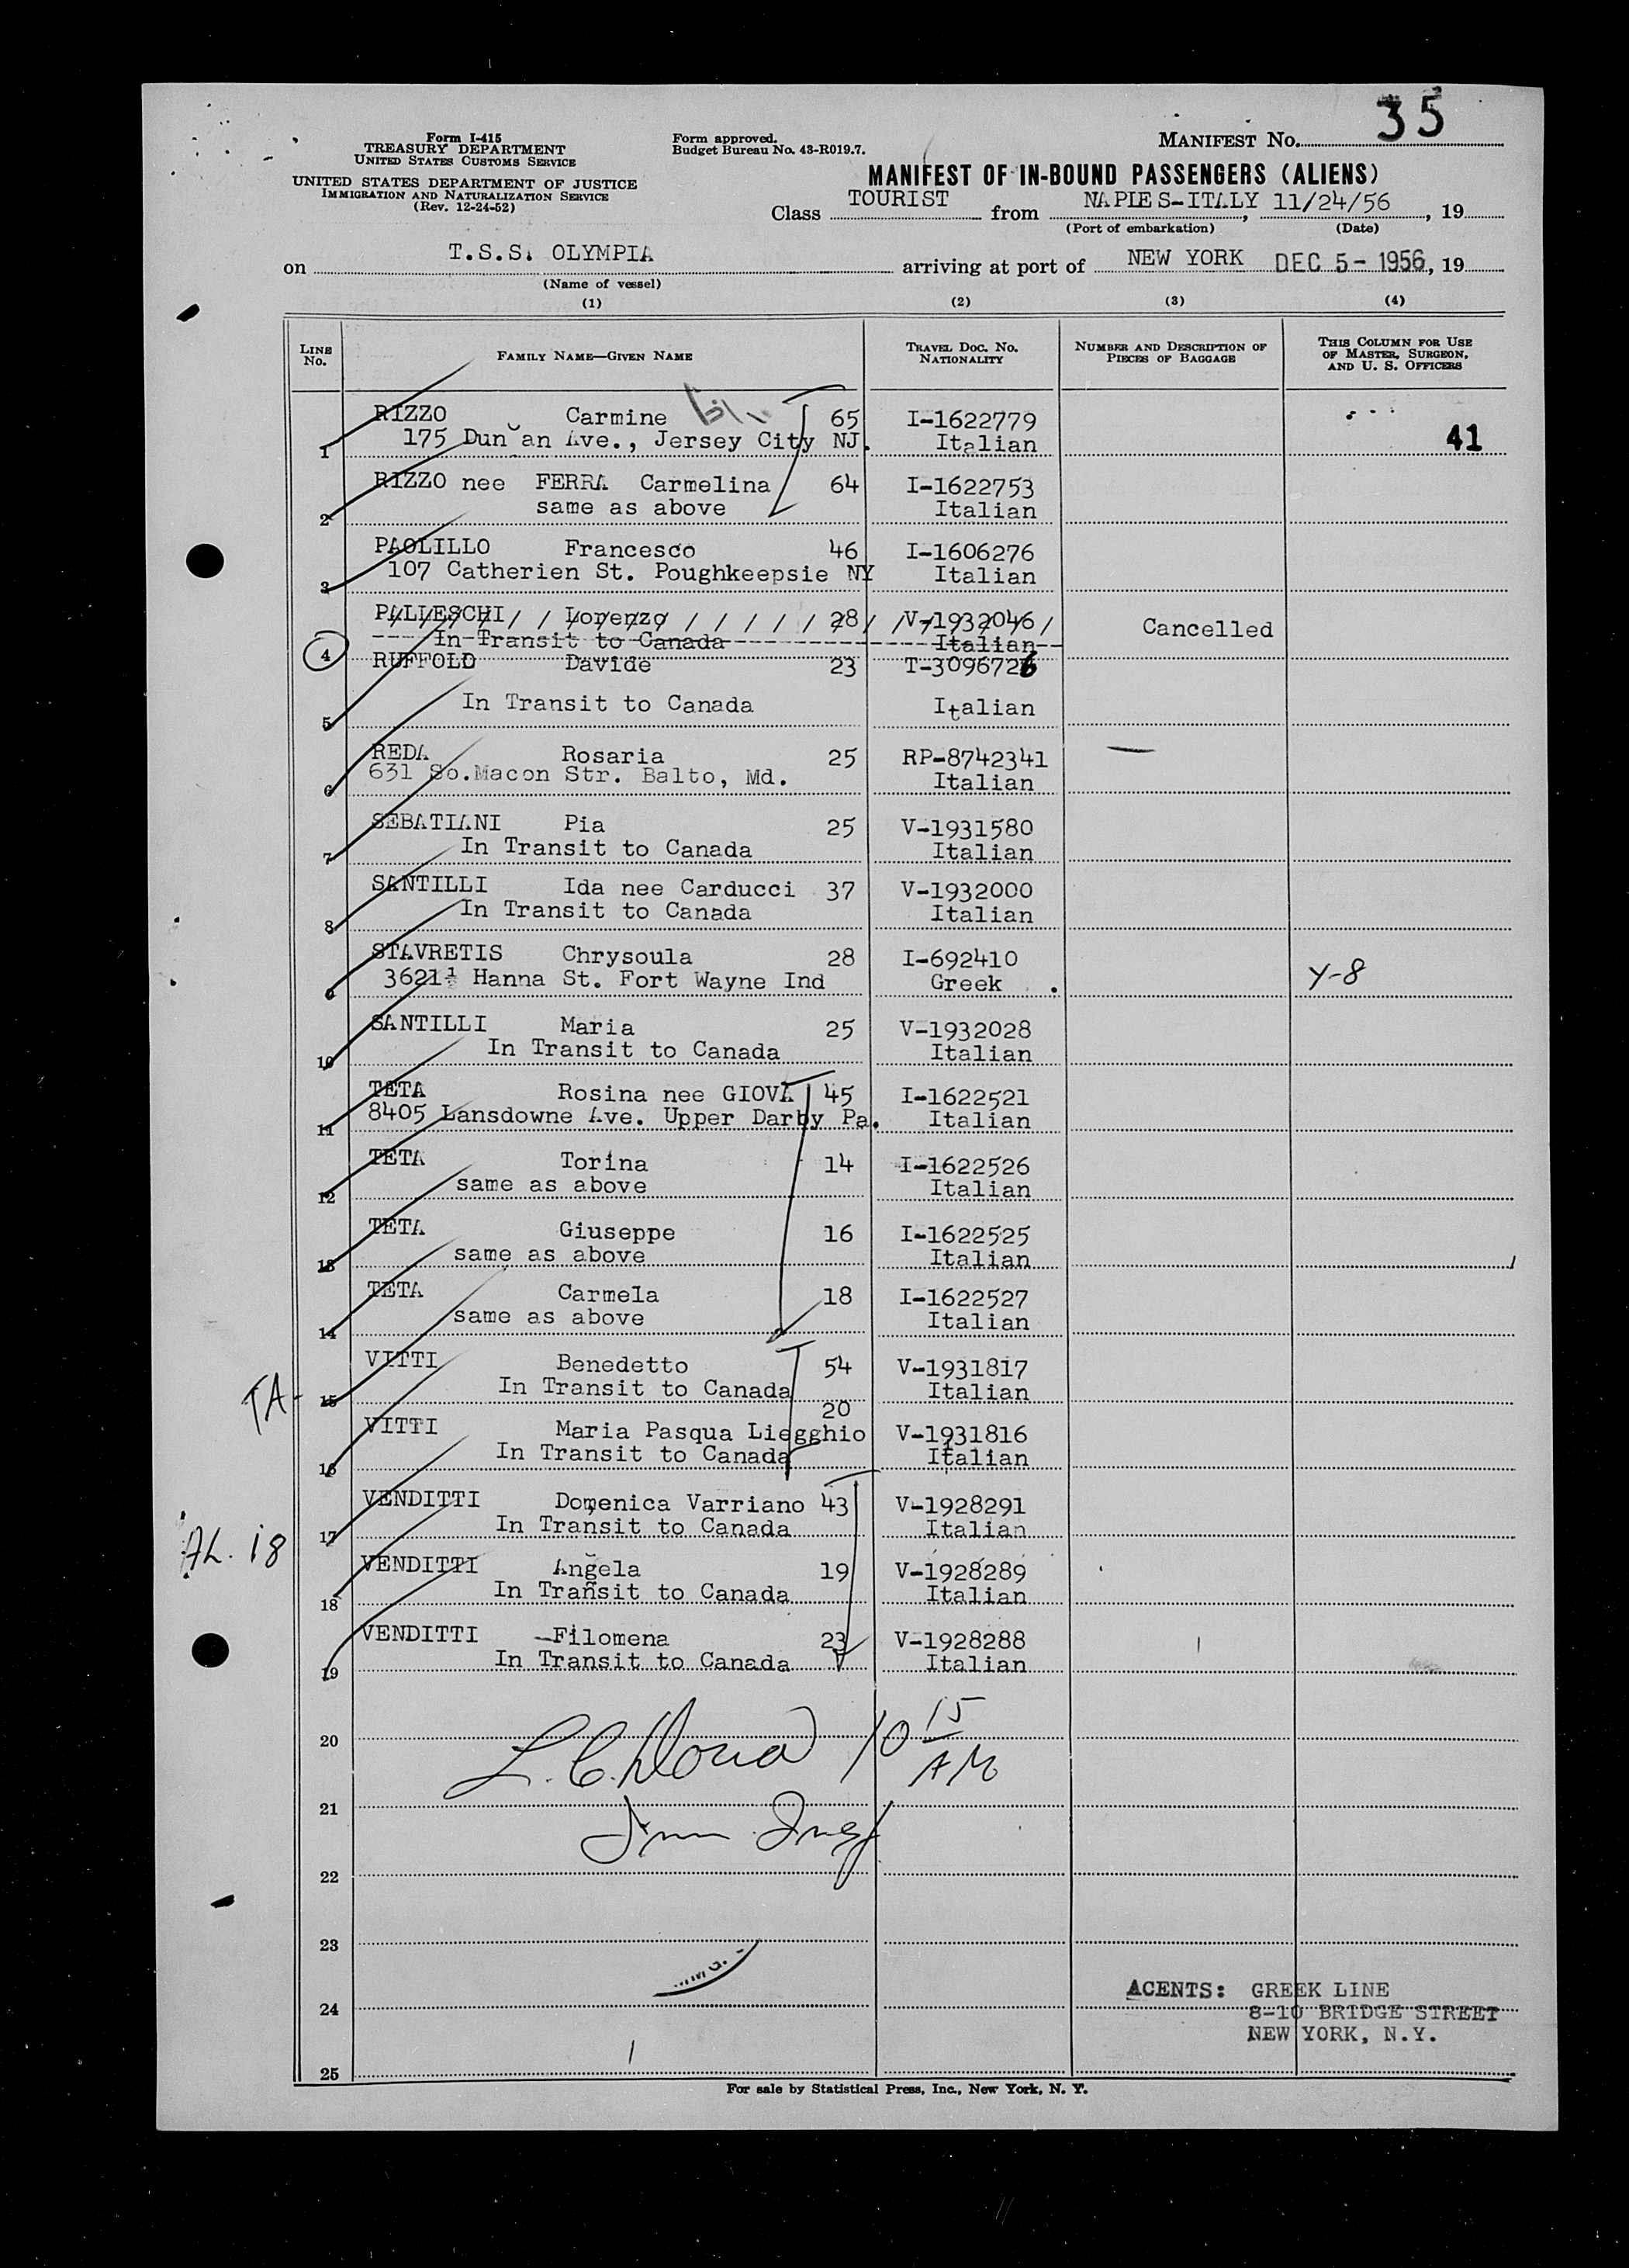 35
Form I-415
TREASURY DEPARTMENT
UNITED STATES CUSTOMS SERVICE
UNITED STATES DEPARTMENT OF JUSTICE
IMMIGRATION AND NATURALIZATION SERVICE
(Rev. 12-24-52)
Form approved.
Budget Bureau No. 43-R019.7.
MANIFEST No.
MANIFEST OF IN-BOUND PASSENGERS (ALIENS)
Class TOURIST from NAPLES-ITALY, 11/24/56, 19
(Port of embarkation) (Date)
on T.S.S. OLYMPIA arriving at port of NEW YORK DEC 5- 1956, 19
(Name of vessel)
(1) (2) (3) (4)
LINE No. FAMILY NAME—GIVEN NAME TRAVEL DOC. No. NATIONALITY NUMBER AND DESCRIPTION OF PIECES OF BAGGAGE THIS COLUMN FOR USE OF MASTER, SURGEON, AND U. S. OFFICERS
RIZZO Carmine 65 I-1622779
1 175 Dun an Ave., Jersey City NJ. Italian 41
RIZZO nee FERRA Carmelina 64 I-1622753
2 same as above Italian
PAOLILLO Francesco 46 I-1606276
3 107 Catherien St. Poughkeepsie NY Italian
PALLESCHI Lorenzo 28 V-1932046 Cancelled
4 In Transit to Canada Italian
RUFFOLD Davide 23 T-3096726
5 In Transit to Canada Italian
REDA Rosaria 25 RP-8742341
6 631 So.Macon Str. Balto, Md. Italian
SEBATIANI Pia 25 V-1931580
7 In Transit to Canada Italian
SANTILLI Ida nee Carducci 37 V-1932000
8 In Transit to Canada Italian
STAVRETIS Chrysoula 28 I-692410
9 3621½ Hanna St. Fort Wayne Ind Greek Y-8
SANTILLI Maria 25 V-1932028
10 In Transit to Canada Italian
TETA Rosina nee GIOVA 45 I-1622521
11 8405 Lansdowne Ave. Upper Darby Pa. Italian
TETA Torina 14 I-1622526
12 same as above Italian
TETA Giuseppe 16 I-1622525
13 same as above Italian
TETA Carmela 18 I-1622527
14 same as above Italian
VITTI Benedetto 54 V-1931817
TA- 15 In Transit to Canada Italian
20
VITTI Maria Pasqua Liegghio V-1931816
16 In Transit to Canada Italian
VENDITTI Domenica Varriano 43 V-1928291
17 In Transit to Canada Italian
AL. 18
VENDITTI Angela 19 V-1928289
18 In Transit to Canada Italian
VENDITTI Filomena 23 V-1928288
19 In Transit to Canada Italian
20 10 15 AM
21
22
23
24
25
AGENTS: GREEK LINE
8-10 BRIDGE STREET
NEW YORK, N.Y.
For sale by Statistical Press, Inc., New York, N. Y.